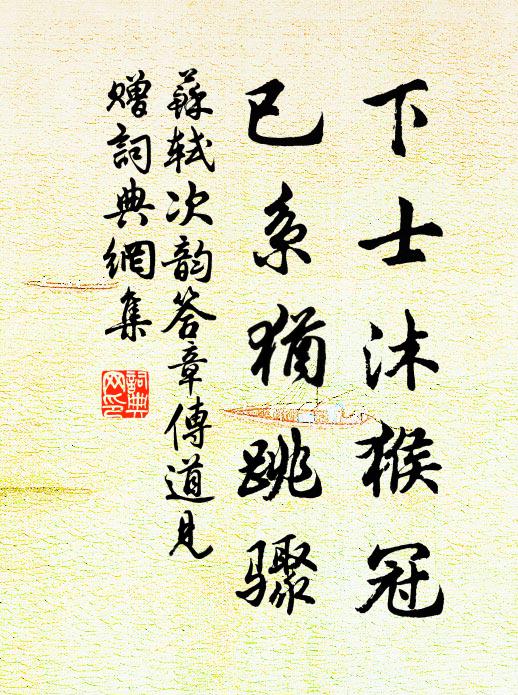 下士沐猴冠
已系猶跳驟
蘇軾次韵答章傳道見
贈詞典網集
詞典网印